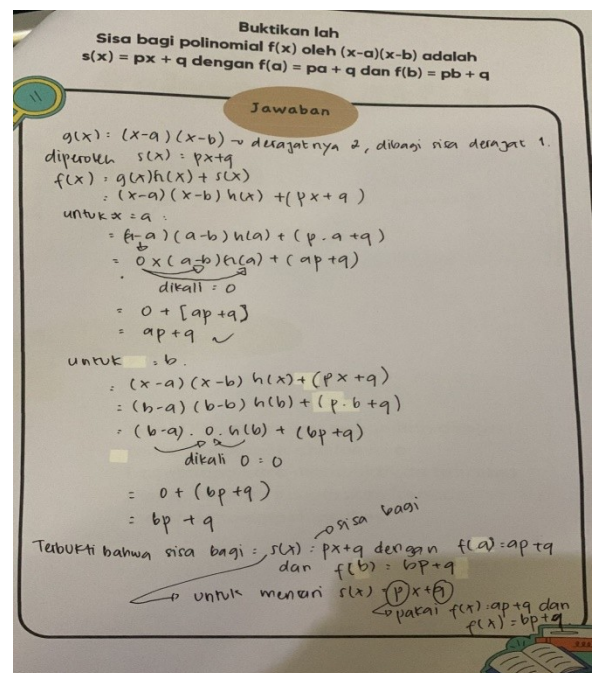 Buktikan lah
Sisa bagi polinomial f(x) oleh (x-a)(x-b) adalah
s(x) = px + q dengan f(a) = pa + q dan f(b) = pb + q
11
Jawaban
g(x) : (x-a) (x-b) ~ derajatnya 2, dibagi sisa derajat 1.
diperoleh s(x) : px+q
f(x) : g(x)h(x) + s(x)
: (x-a) (x-b) h(x) + (px + q)
untuk x = a :
= (a-a) (a-b) h(a) + (p.a +q)
= 0 x (a-b) h(a) + (ap+q)
dikali = 0
= 0 + [ap+q]
= ap+q ✓
untuk = b.
: (x-a) (x-b) h(x) + (px +q)
: (b-a) (b-b) h(b) + (p.b +q)
: (b-a) . 0 . h(b) + (bp +q)
dikali 0 = 0
= 0 + (bp +q)
= bp + q
sisa bagi
Terbukti bahwa sisa bagi : s(x) : px+q dengan f(a) = ap +q
dan f(b) : bp+q
untuk mencari s(x) = px+q
pakai f(x) : ap+q dan
f(x) = bp+q